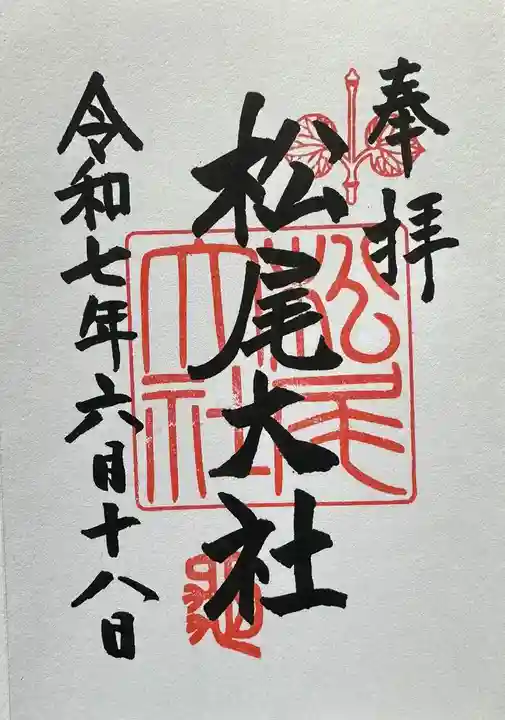 奉拝
松尾大社
松尾大社
令和七年六月十八日